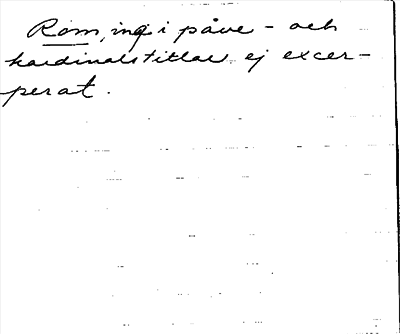 Rom, ing i påve- och
kardinalstitlar ej excer-
perat.